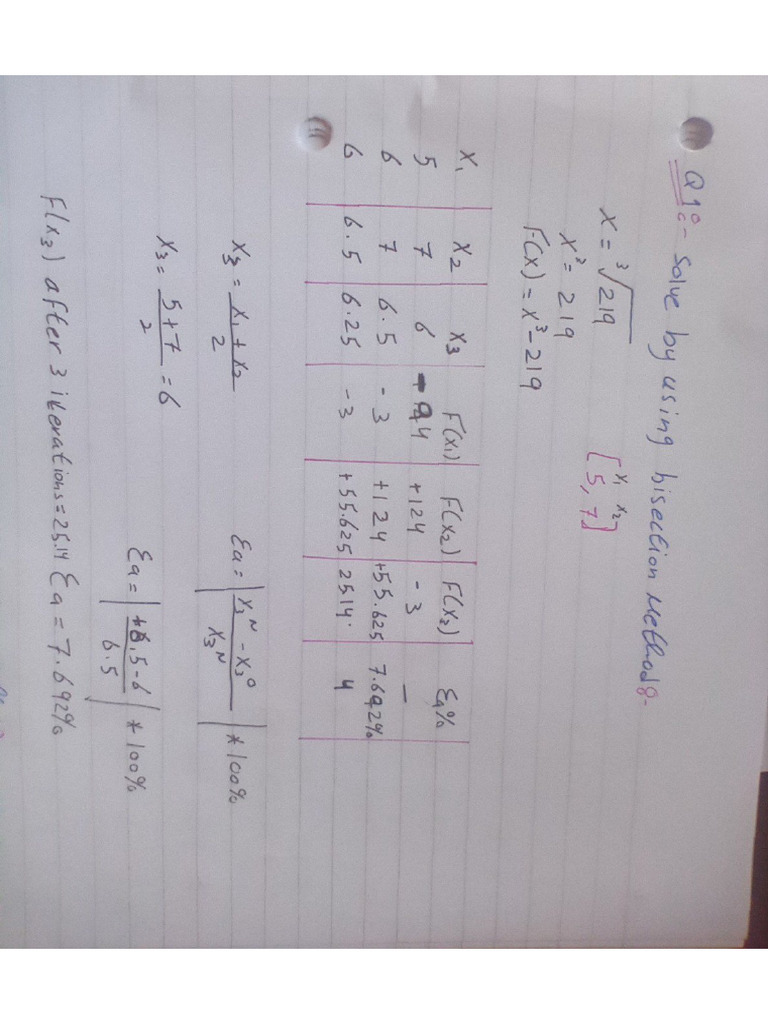 Q1:- Solve by using bisection Method:-
X = ³√219
x³ = 219
F(x) = x³ - 219
x₁ x₂
[5, 7]
X₁ X₂ X₃ F(X₁) F(X₂) F(X₃) Ea%
5 7 6 -94 +124 -3 —
6 7 6.5 -3 +124 +55.625 7.692%
6 6.5 6.25 -3 +55.625 2514. 4
X₃ = X₁ + X₂ / 2
Ea = | X₃ᴺ - X₃⁰ / X₃ᴺ | * 100%
X₃ = 5+7 / 2 = 6
Ea = | +6.5-6 / 6.5 | * 100%
F(X₃) after 3 iterations = 25.14 Ea = 7.692%